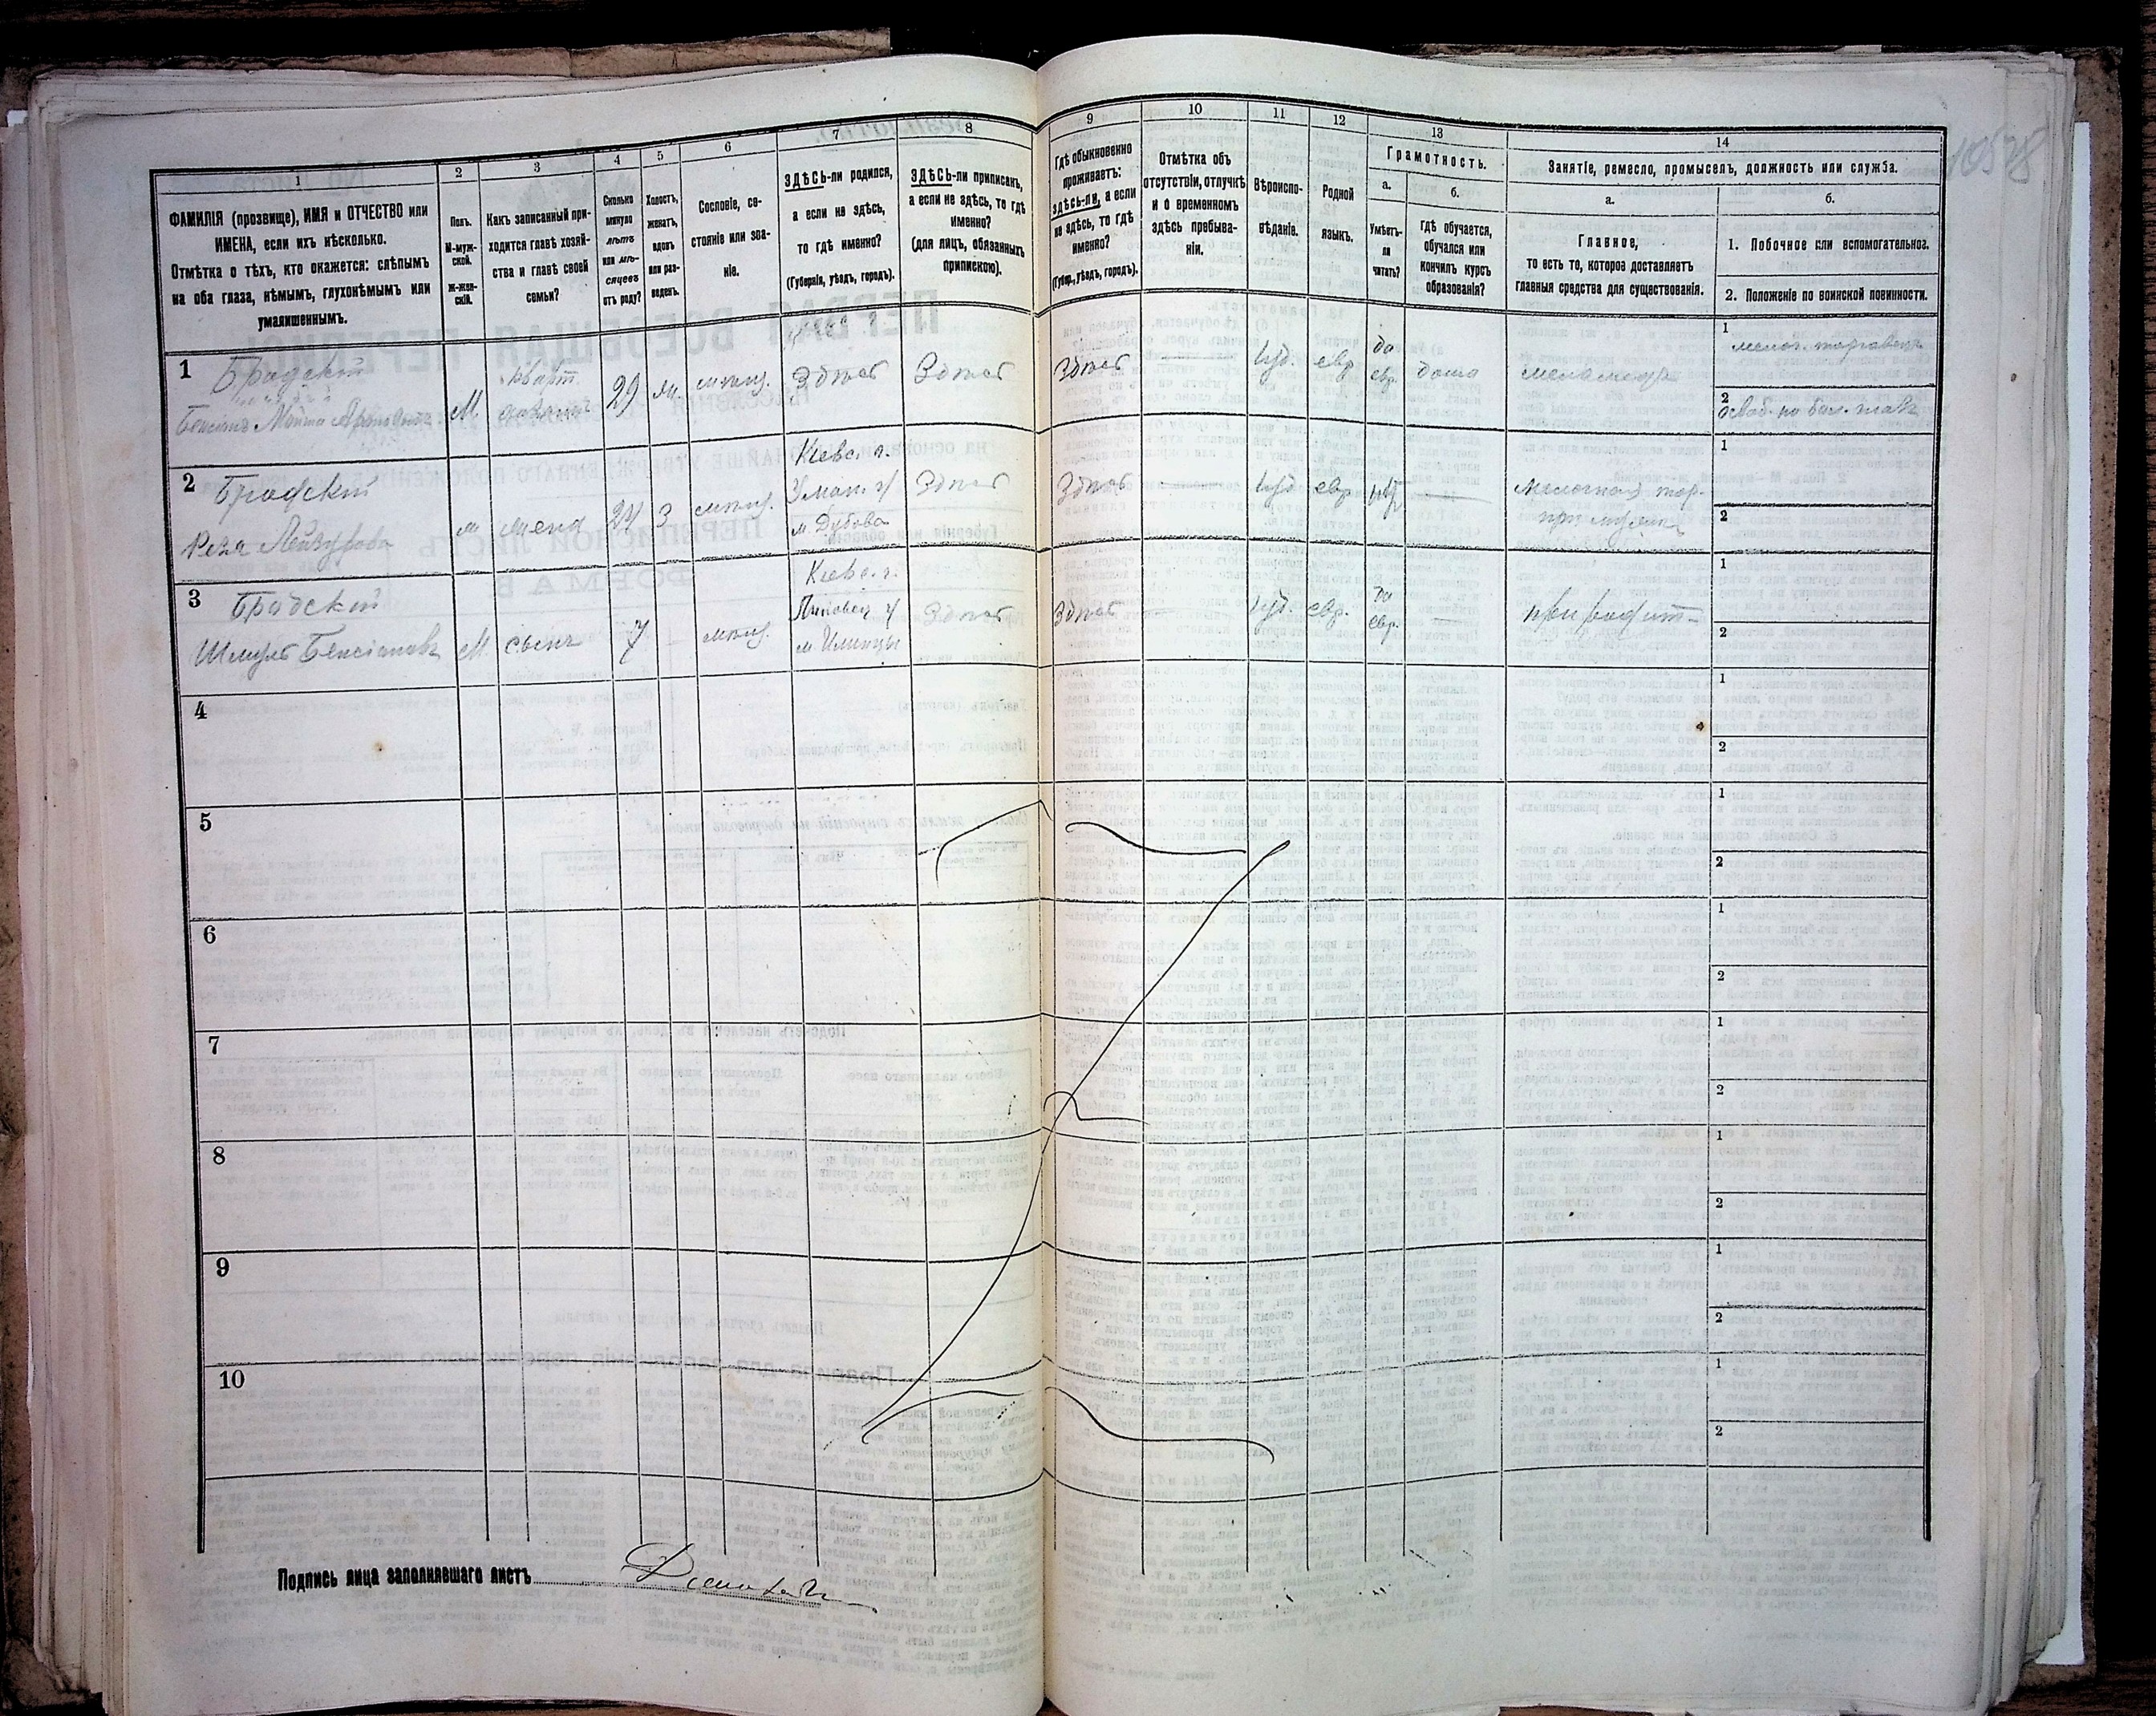 10578
1
ФАМИЛІЯ (прозвище), ИМЯ и ОТЧЕСТВО или
ИМЕНА, если ихъ нѣсколько.
Отмѣтка о тѣхъ, кто окажется: слѣпымъ
на оба глаза, нѣмымъ, глухонѣмымъ или
умалишеннымъ.
2
Полъ.
М-муж-
ской.
Ж-жен-
скій.
3
Какъ записанный при-
ходится главѣ хозяй-
ства и главѣ своей
семьи?
4
Сколько
минуло
лѣтъ
или мѣ-
сяцевъ
отъ роду?
5
Холостъ,
женатъ,
вдовъ
или раз-
веденъ.
6
Сословіе, со-
стояніе или зва-
ніе.
7
ЗДѢСЬ-ли родился,
а если не здѣсь,
то гдѣ именно?
(Губернія, уѣздъ, городъ).
8
ЗДѢСЬ-ли приписанъ,
а если не здѣсь, то гдѣ
именно?
(для лицъ, обязанныхъ
припискою).
9
Гдѣ обыкновенно
проживаетъ:
здѣсь-ли, а если
не здѣсь, то гдѣ
именно?
(Губер., уѣздъ, городъ).
10
Отмѣтка объ
отсутствіи, отлучкѣ
и о временномъ
здѣсь пребыва-
ніи.
11
Вѣроиспо-
вѣданіе.
12
Родной
языкъ.
13
Грамотность.
а.
Умѣетъ-
ли
читать?
б.
Гдѣ обучается,
обучался или
кончилъ курсъ
образованія?
14
Занятіе, ремесло, промыселъ, должность или служба.
а.
Главное,
то есть то, которое доставляетъ
главныя средства для существованія.
б.
1. Побочное или вспомогательное.
2. Положеніе по воинской повинности.
1
Бродскій
Бенсіонъ
М
кварт.
29
ж.
мѣщ.
Здѣсь
Здѣсь
Здѣсь
Іуд.
евр
да
евр.
дома
меламедъ
1
мелоч. торговецъ
2
2
Бродскій
Лейзерова
ж
жена
24
З
мѣщ.
Кіевс. г.
Уман. у
м. Дубова
Здѣсь
Здѣсь
Іуд
евр.
нѣт
при мужѣ
1
2
3
Бродскій
Шмуль Бенсіоновъ
М
сынъ
7
мѣщ.
Кіевс. г.
Липовец у
м. Илинцы
Здѣсь
Здѣсь
Іуд.
евр.
да
евр.
при родит-
1
2
4
1
2
5
1
2
6
1
2
7
1
2
8
1
2
9
1
2
10
1
2
Подпись лица заполнявшаго листъ